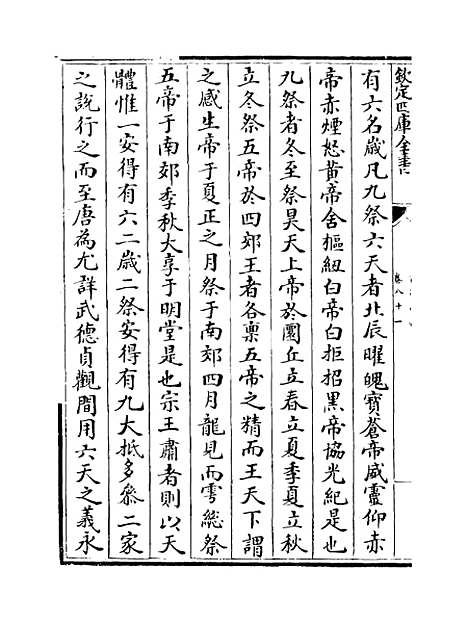 欽定四庫全書
卷八十一
有六名歲凡九祭六天者北辰曜魄寶蒼帝威靈仰赤
帝赤煙怒黃帝含樞紐白帝白拒招黑帝協光紀是也
九祭者冬至祭昊天上帝於圜丘立春立夏季夏立秋
立冬祭五帝於四郊王者各稟五帝之精而王天下謂
之感生帝于夏正之月祭于南郊四月龍見而雩總祭
五帝于南郊季秋大享于明堂是也宗王肅者則以天
體惟一安得有六二歲二祭安得有九大抵多叅二家
之說行之而至唐為尤詳武德貞觀間用六天之義永